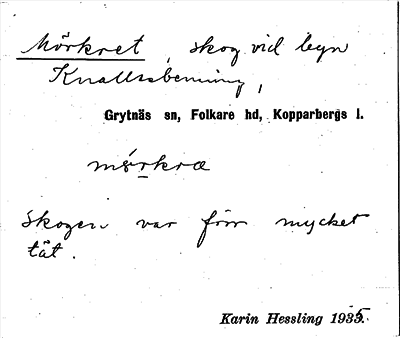 Mörkret, skog vid byn
Knallasbenning,
Grytnäs sn, Folkare hd, Kopparbergs l.
mörkra
Skogen var förr mycket
tät.
Karin Hessling 1935.